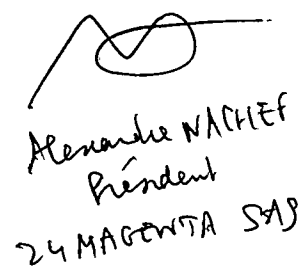 Alexandre NACHEF
Président
24 MAGENTA SAS